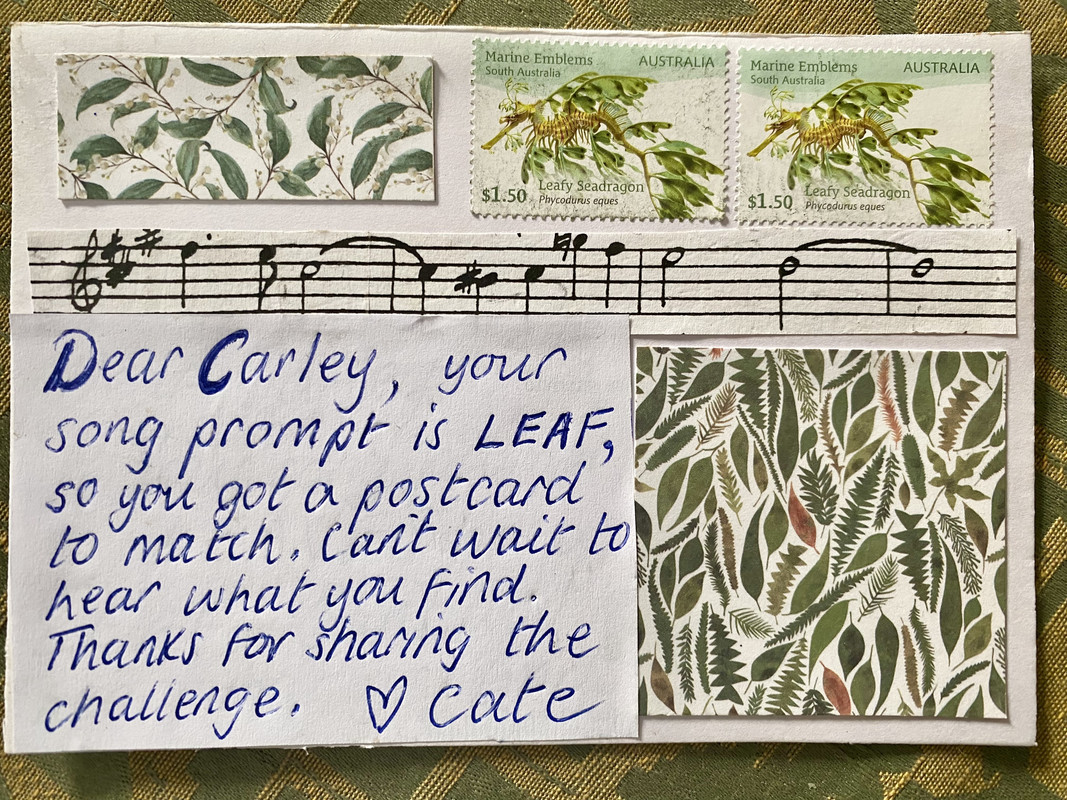 Marine Emblems AUSTRALIA
South Australia
$1.50 Leafy Seadragon
Phycodurus eques
Marine Emblems AUSTRALIA
South Australia
$1.50 Leafy Seadragon
Phycodurus eques
Dear Carley, your
song prompt is LEAF,
so you got a postcard
to match. Can't wait to
hear what you find.
Thanks for sharing the
challenge. ♡ Cate